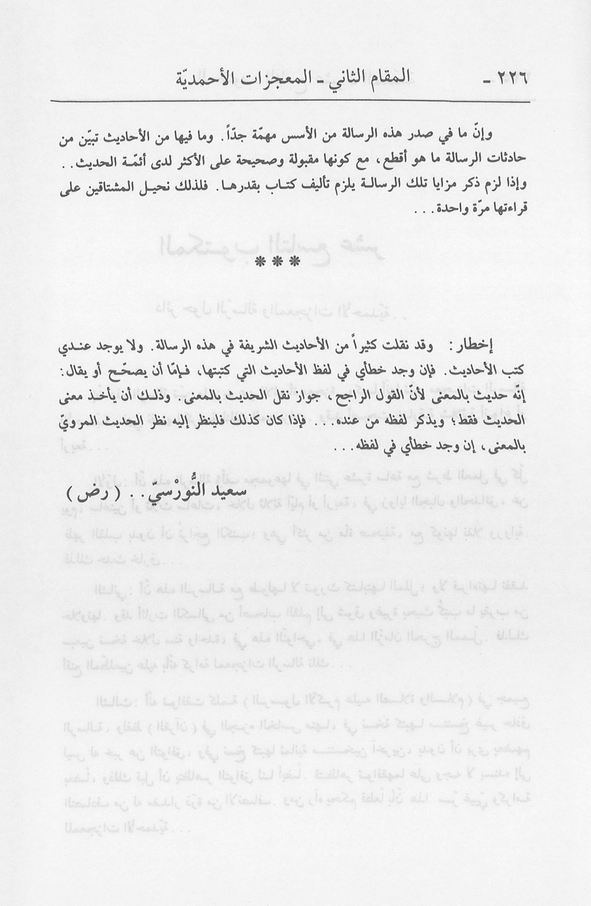 ٢٢٦ - المقام الثاني - المعجزات الأحمديّة
وإنّ ما في صدر هذه الرسالة من الأسس مهمّة جدّاً. وما فيها من الأحاديث تبيّن من
حادثات الرسالة ما هو أقطع، مع كونها مقبولة وصحيحة على الأكثر لدى أئمّة الحديث..
وإذا لزم ذكر مزايا تلك الرسالة يلزم تأليف كتاب بقدرها. فلذلك نحيل المشتاقين على
قراءتها مرّة واحدة...
***
إخطار: وقد نقلت كثيراً من الأحاديث الشريفة في هذه الرسالة. ولا يوجد عندي
كتب الأحاديث. فإن وجد خطأي في لفظ الأحاديث التي كتبتها، فإمّا أن يصحّح أو يقال:
إنّه حديث بالمعنى لأنّ القول الراجح، جواز نقل الحديث بالمعنى. وذلك أن يأخذ معنى
الحديث فقط؛ ويذكر لفظه من عنده... فإذا كان كذلك فلينظر إليه نظر الحديث المرويّ
بالمعنى، إن وجد خطأي في لفظه...
سعيد النُّورْسيّ.. (رض)